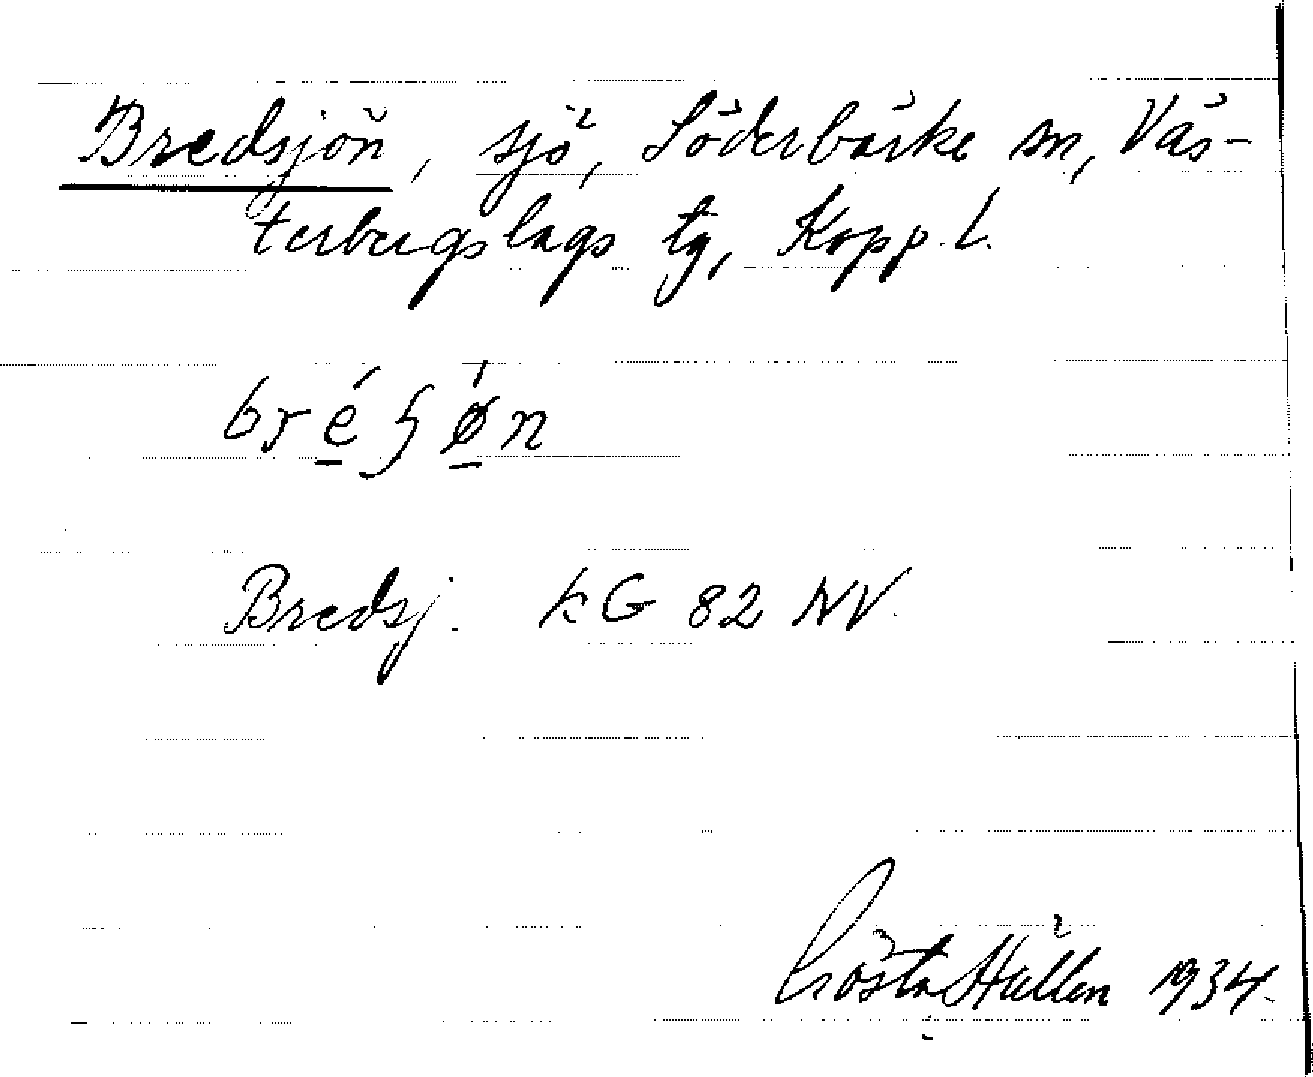 Bredsjön, sjö, Söderbärke sn, Väs-
terbergslags tg, Kopp. l.
bréʃø̍n
Bredsj. kG 82 NV.
Gösta Hällen 1934.